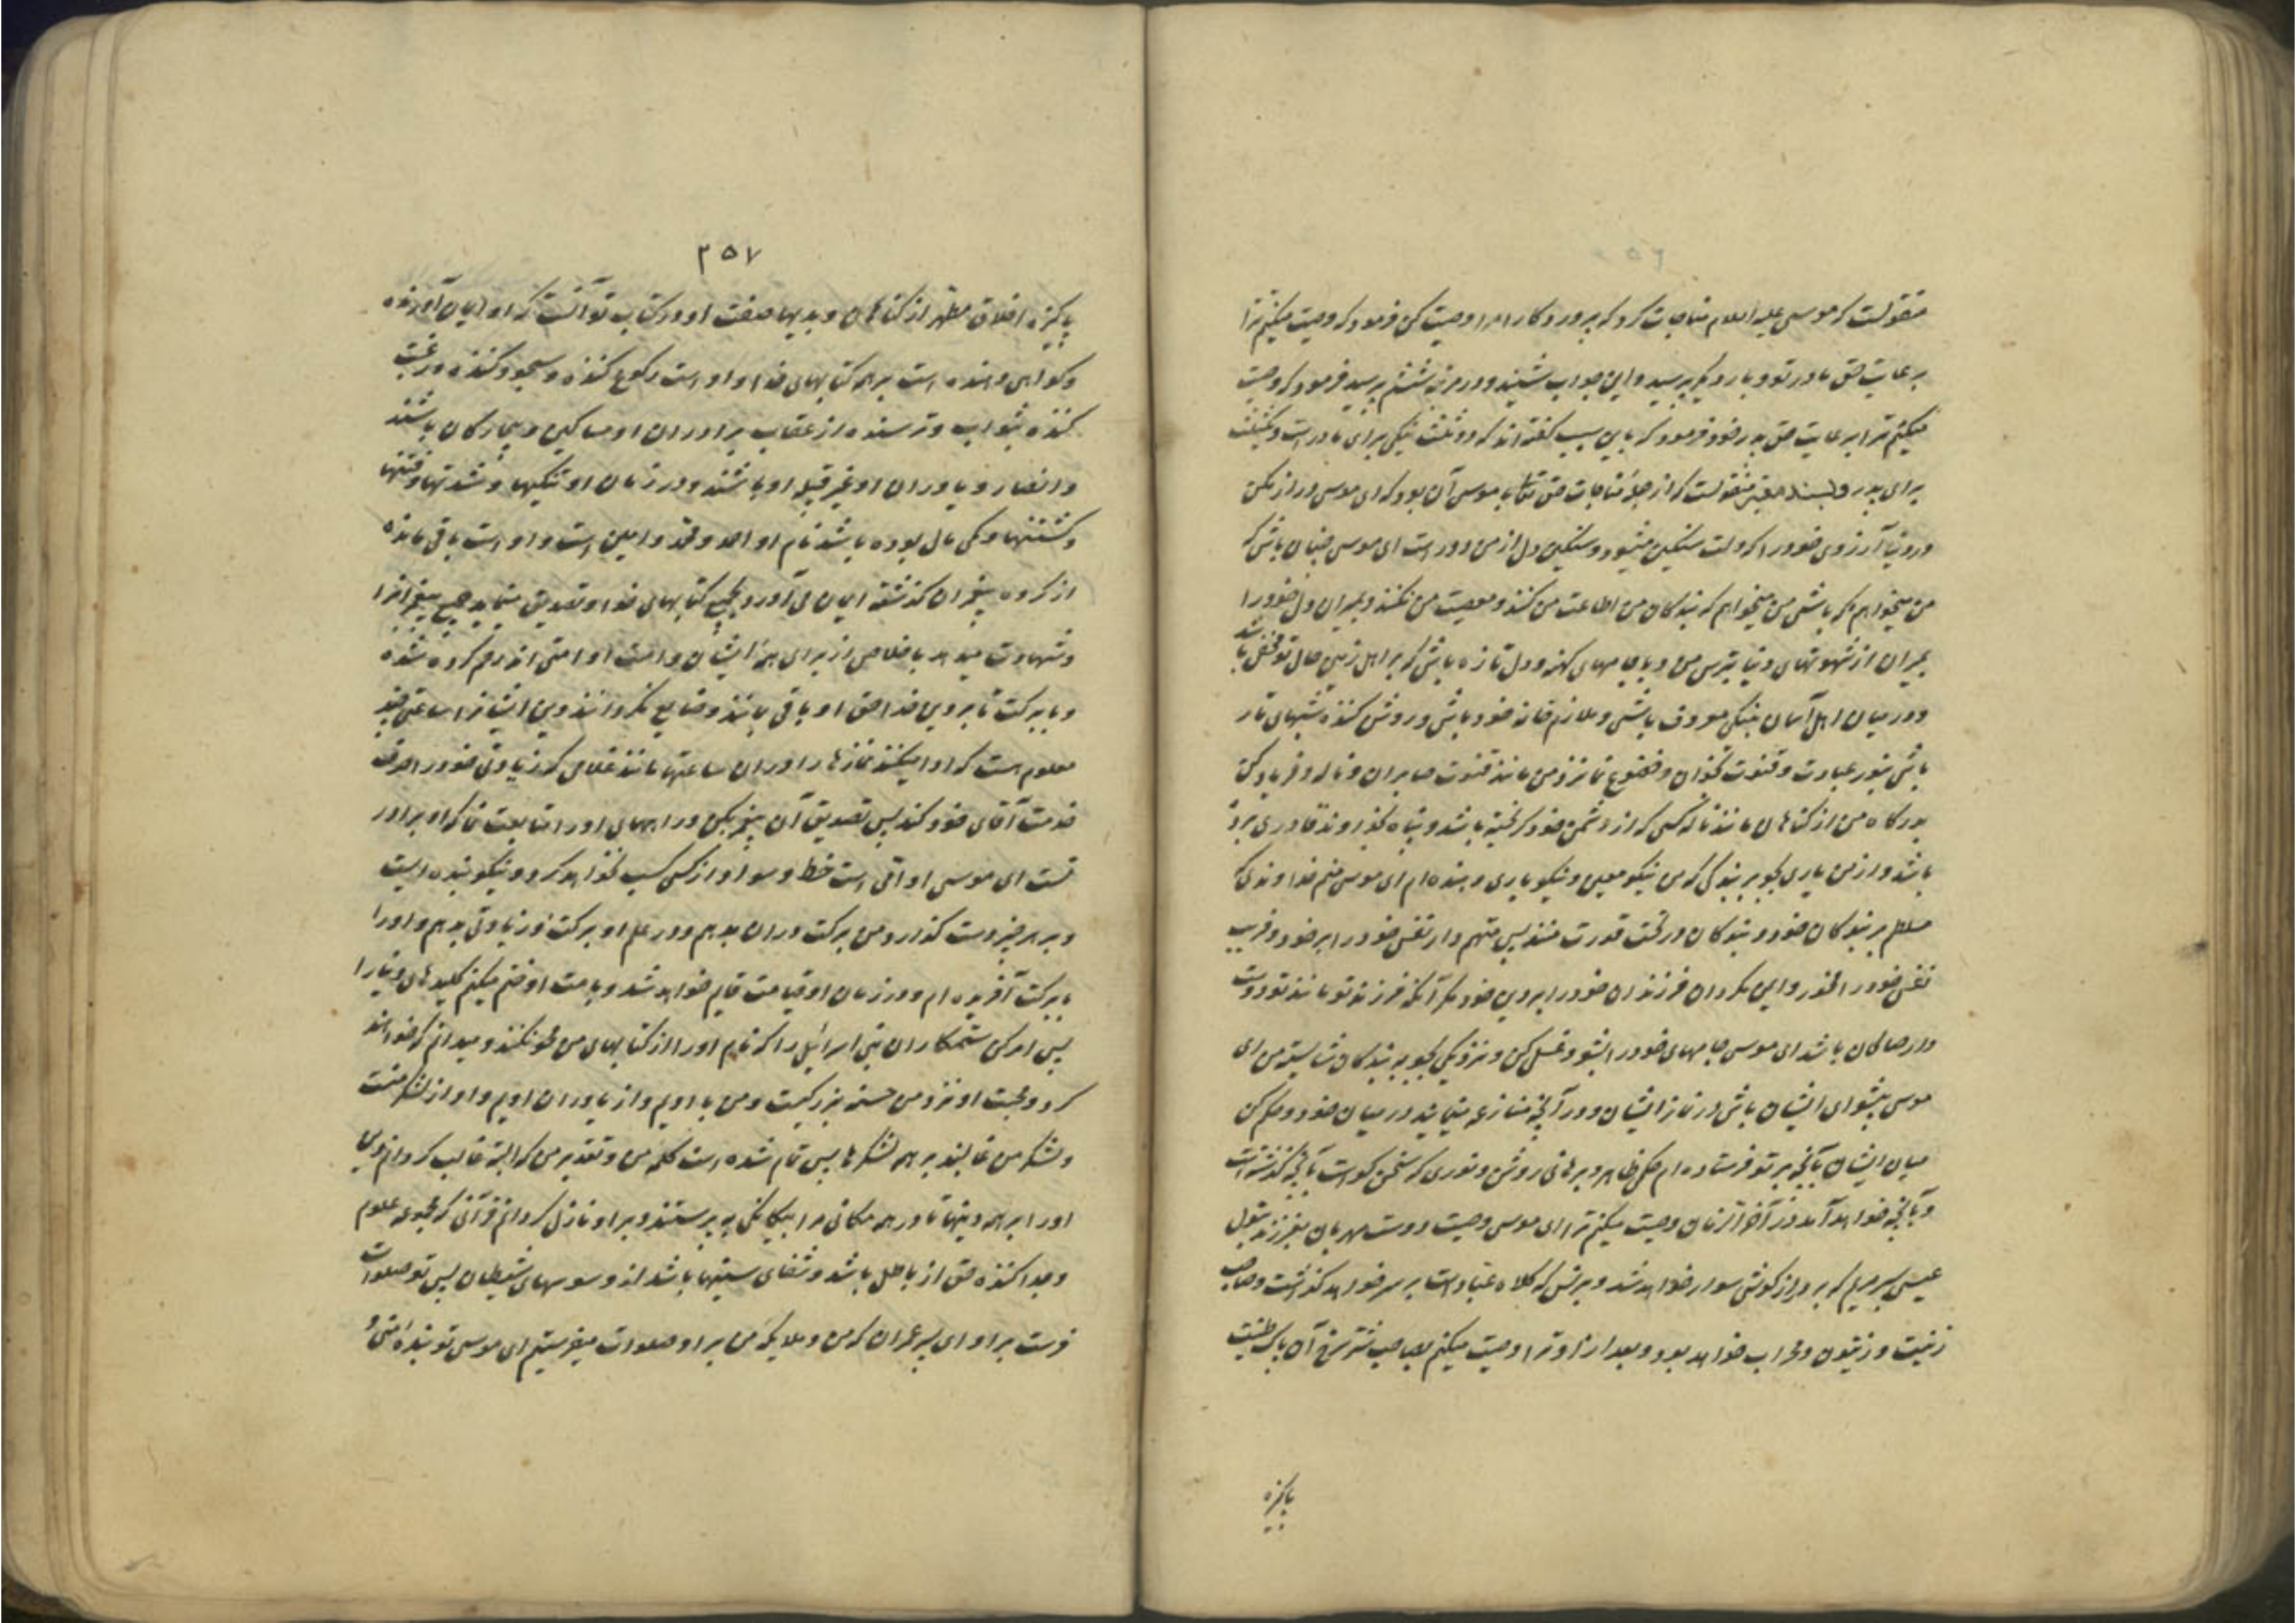 منقولست که موسی علیه السلام مناجات کرد که پروردگارا مرا وصیت کن فرمود که وصیت میکنم ترا
برعایت حق مادر تو و بار دیگر پرسید و این جواب شنید و در مرتبه ششم پرسید فرمود که وصیت
میکنم ترا برعایت حق پدر خود فرمود که باین سبب گفته‌اند که دو ثلث نیکی برای مادر است و یکثلث
برای پدر و بسند معتبر منقولست که از جمله مناجات حق تعالی با موسی آن بود که ای موسی دراز مکن
در دنیا آرزوی خود را که دلت سنگین میشود و سنگین دل از من دور است ای موسی چنان باش که
من میخواهم که باشی من میخواهم که بندگان من اطاعت من کنند و معصیت من نکنند و بمیران دل خود را
بمیران از شهوتهای دنیا بترس من و با جامهای کهنه و دل تازه باش که بر اهل زمین حال تو مخفی باشد
و در میان اهل آسمان بنیکی معروف باشی و ملازم خانه خود باش و روشن کننده شبهای تار
باش بنور عبادت و قنوت بخوان و خضوع نما نزد من مانند قنوت صابران و ناله و فریاد کن
بدرگاه من از گناهان مانند ناله کسی که از دشمن خود گریخته باشد و پناه بخداوند قادری برده
باشد و از من یاری بجو بر بندگی که من نیکو معین و نیکو یاری دهنده‌ام ای موسی منم خداوندی که
مسلطم بر بندگان خود و بندگان در تحت قدرت منند پس متهم دار نفس خود را بر خود و فریب
نفس خود را مخور و ایمن مگردان فرزندان خود را بر دین خود مگر آنکه فرزند تو مانند تو دوست
دار صالحان باشد ای موسی جامهای خود را بشو و غسل کن و نزدیکی بجو به بندگان شایسته من ای
موسی پیشوای ایشان باش در نماز ایشان و در آنچه منازعه مینمایند در میان خود و حکم کن
میان ایشان بآنچه بر تو فرستاده‌ام حکمی ظاهر و برهانی روشن و نوری که سخن گو است بآنچه گذشته است
و بآنچه خواهد آمد در آخر الزمان وصیت میکنم ترا ای موسی وصیت دوست مهربان بفرزند بتول
عیسی پسر مریم که بر درازگوش سوار خواهد شد و برنس که کلاه عباد است بر سر خواهد گذاشت و صاحب
زیت و زیتون و محراب خواهد بود و بعد از او ترا وصیت میکنم بصاحب شتر سرخ آن پاک طینت
پاکیزه
۲۵۷
پاکیزه اخلاق مطهر از گناهان و بدیها صفت او در کتاب تو آنست که او ایمان آورنده
و گواهی دهنده است بر همه کتابهای خدا و او است رکوع کننده و سجود کننده و رغبت
کننده بثواب و ترسنده از عقاب برادران او مساکین و بیچارگان باشند
و انصار و یاوران او غیر قبیله او باشند و در زمان او تنگیها و شدتها و فتنها
و کشتنها و کمی مال بوده باشد نام او احمد و محمد و امین است و او است باقی مانده
از گروه پیغمبران گذشته ایمان می‌آورد بجمیع کتابهای خدا و تصدیق مینماید جمیع پیغمبرانرا
و شهادت میدهد باخلاص از برای همه ایشان و امت او امتی‌اند رحم کرده شده
و با برکت تا بر دین خدا حق او باقی بمانند و ضایع نگردانند دین ایشانرا ساعتی چند
معلوم هست که ادا میکنند نمازها را در ان ساعتها مانند غلامی که زیادتی خود را صرف
خدمت آقای خود کند پس تصدیق آن پیغمبر بکن و راههای او را متابعت نما که او برادر
تست ای موسی او امی است خط و سواد از کسی کسب نخواهد کرد و نیکو بنده ایست
و بر هر چیز دست گذارد من برکت در ان بدهم و در علم او برکت و زیادتی بدهم و او را
با برکت آفریده‌ام و در زمان او قیامت قایم خواهد شد و بامت او ختم میکنم کلیدهای دنیا را
پس امر کن ستمکاران بنی اسرائیل را که نام او را از کتابهای من محو نکنند و میدانم که خواهند
کرد و محبت او نزد من حسنه بزرگیست و من با اویم و از یاوران اویم و او از لشکر منست
و لشکر من غالبند بر همه لشکرها پس تمام شده است کلمه من و تقدیر من که البته غالب گردانم دین
او را بر همه دینها تا در همه مکانی مرا بیگانگی بپرستند و بر او نازل گردانم قرآنی که مجموعه علوم
و جدا کننده حق از باطل باشد و شفای سینها باشد از وسوسهای شیطان پس تو صلوات
فرست بر او ای پسر عمران که من و ملایکه من بر او صلوات میفرستیم ای موسی تو بنده منی و